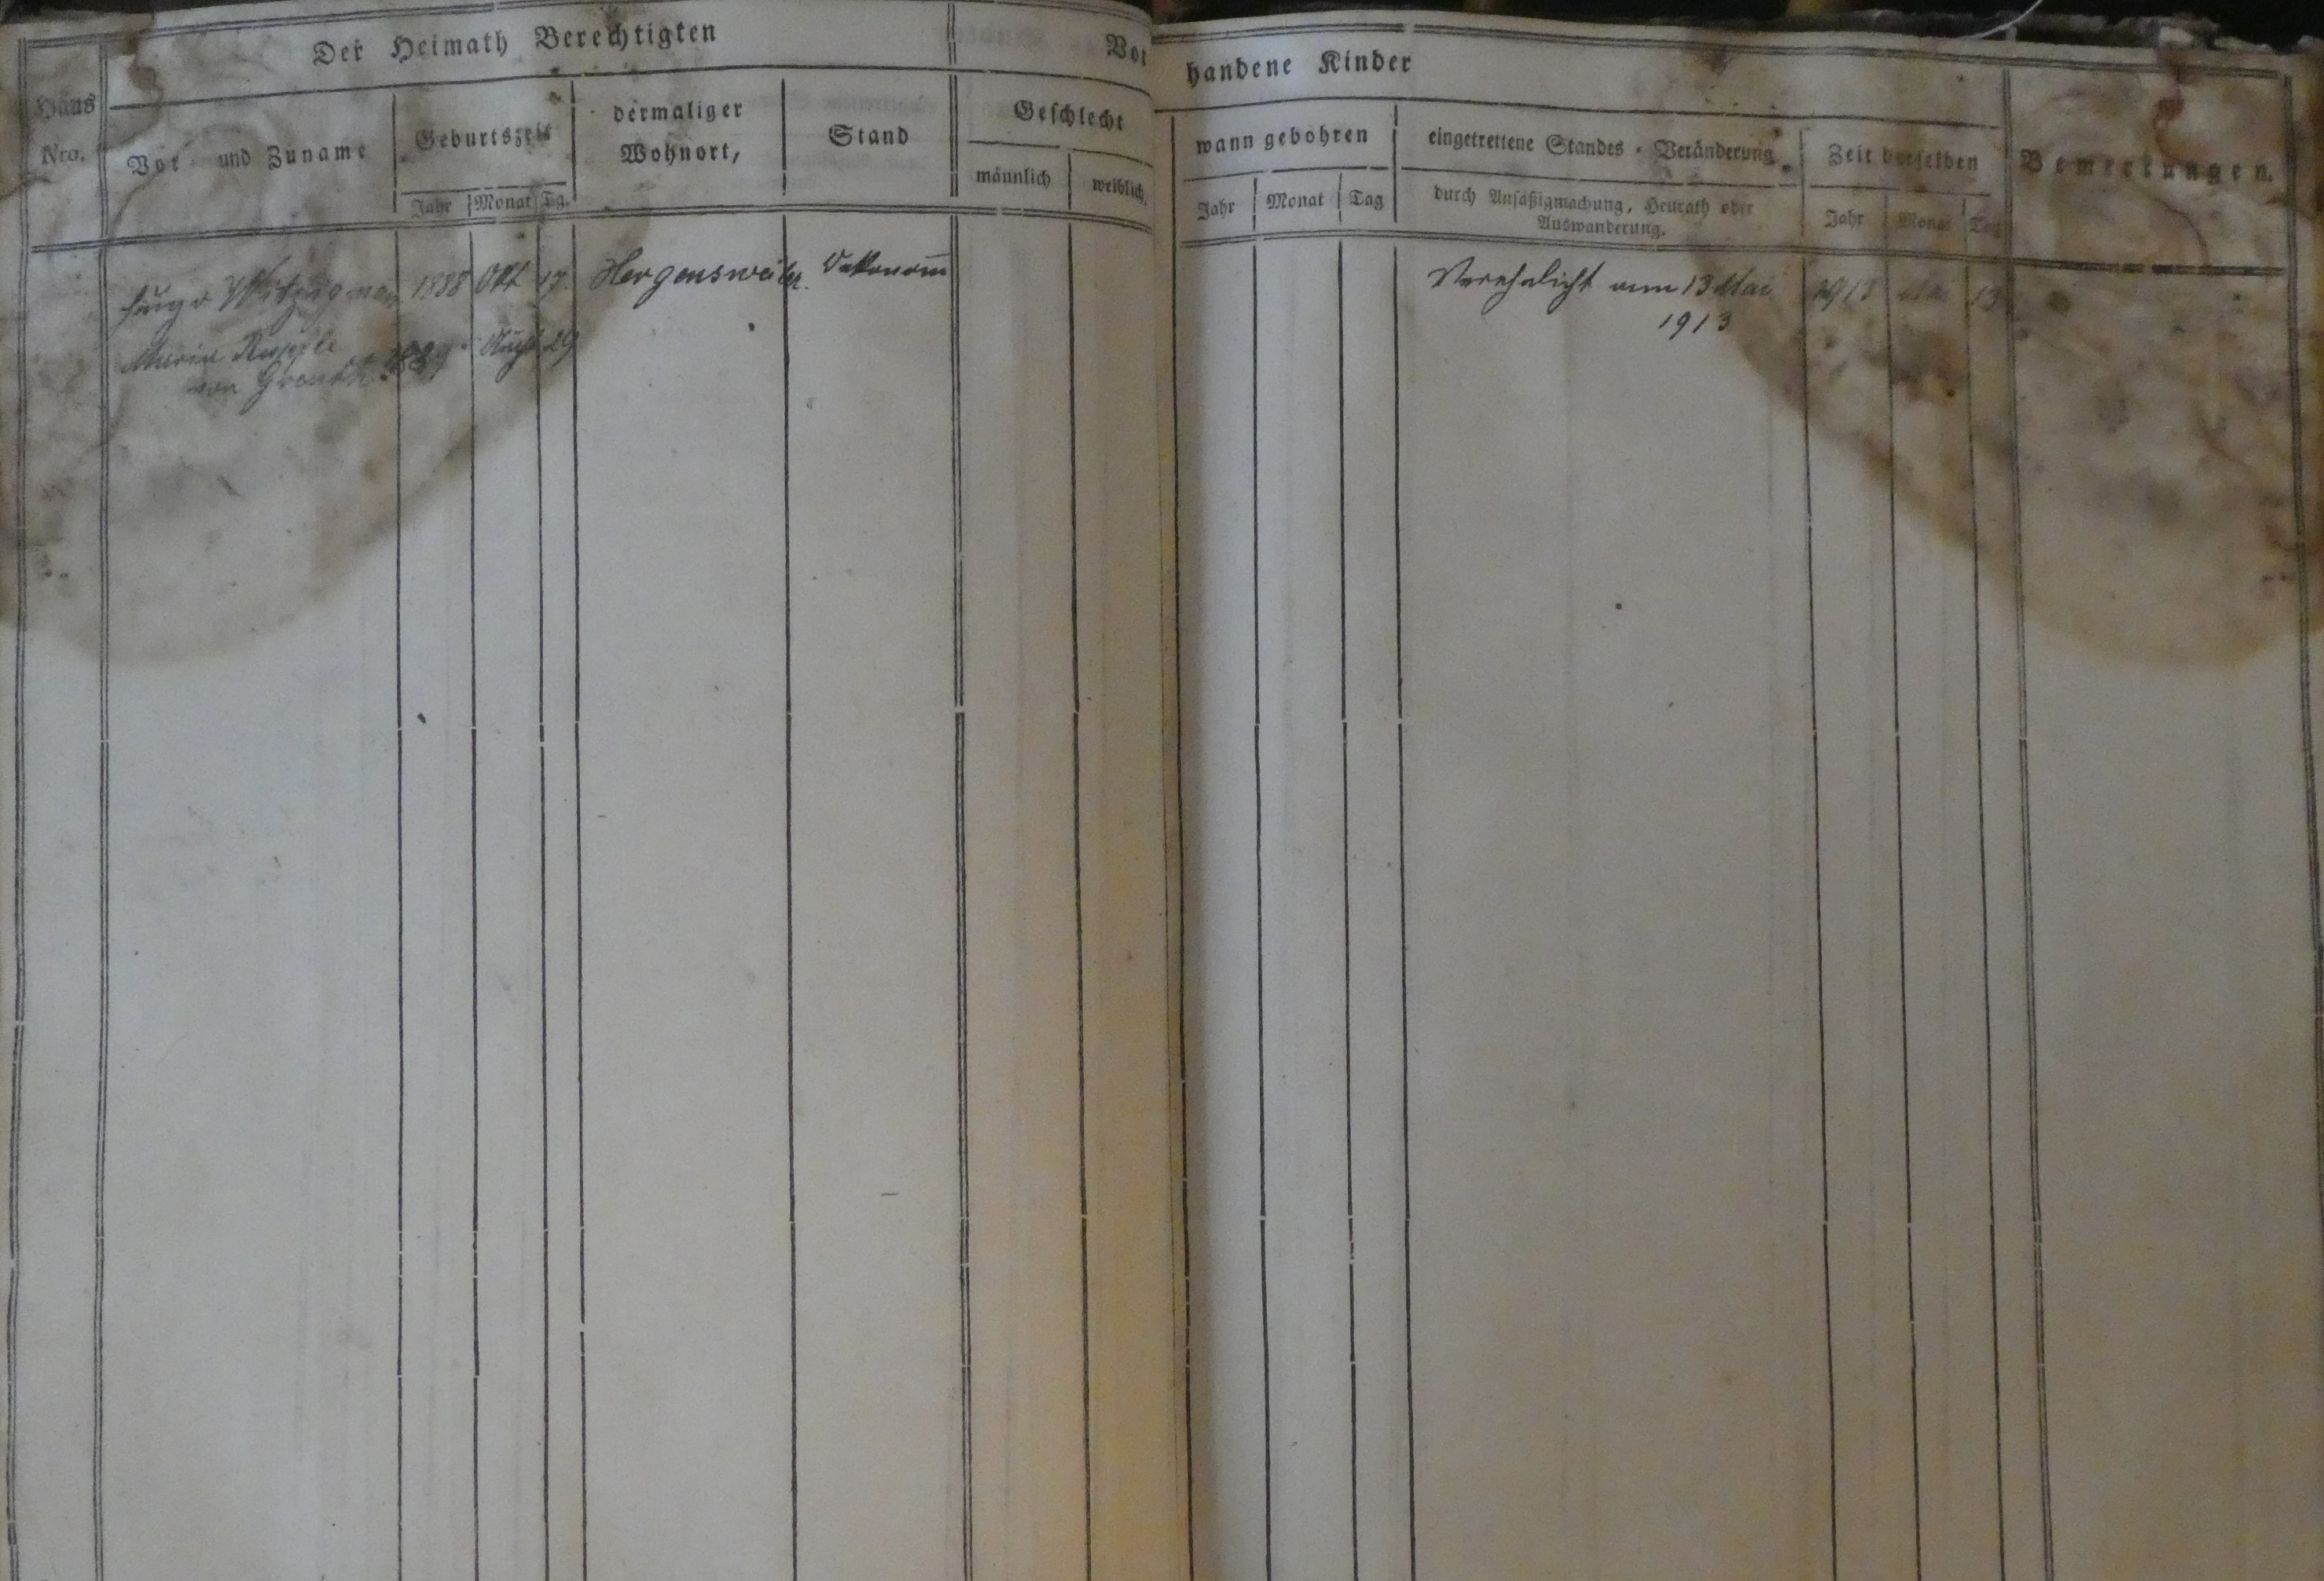 Der Heimath Berechtigten
Vor
handene Kinder
Haus
Nro.
Vor- und Zuname
Geburtszeit
Jahr Monat Tg.
dermaliger
Wohnort,
Stand
Geschlecht
männlich weiblich.
wann gebohren
Jahr Monat Tag
eingetrettene Standes-Veränderung
durch Ansäßigmachung, Heurath oder
Auswanderung.
Zeit derselben
Jahr Monat Tag
Bemerkungen.
Hugo Witzigman 1888 Okt 17. Hergensweiler. Oekonom Verehelicht am 13 Mai 1913 Mai 13
1913
Maria 1889 Aug 29
von